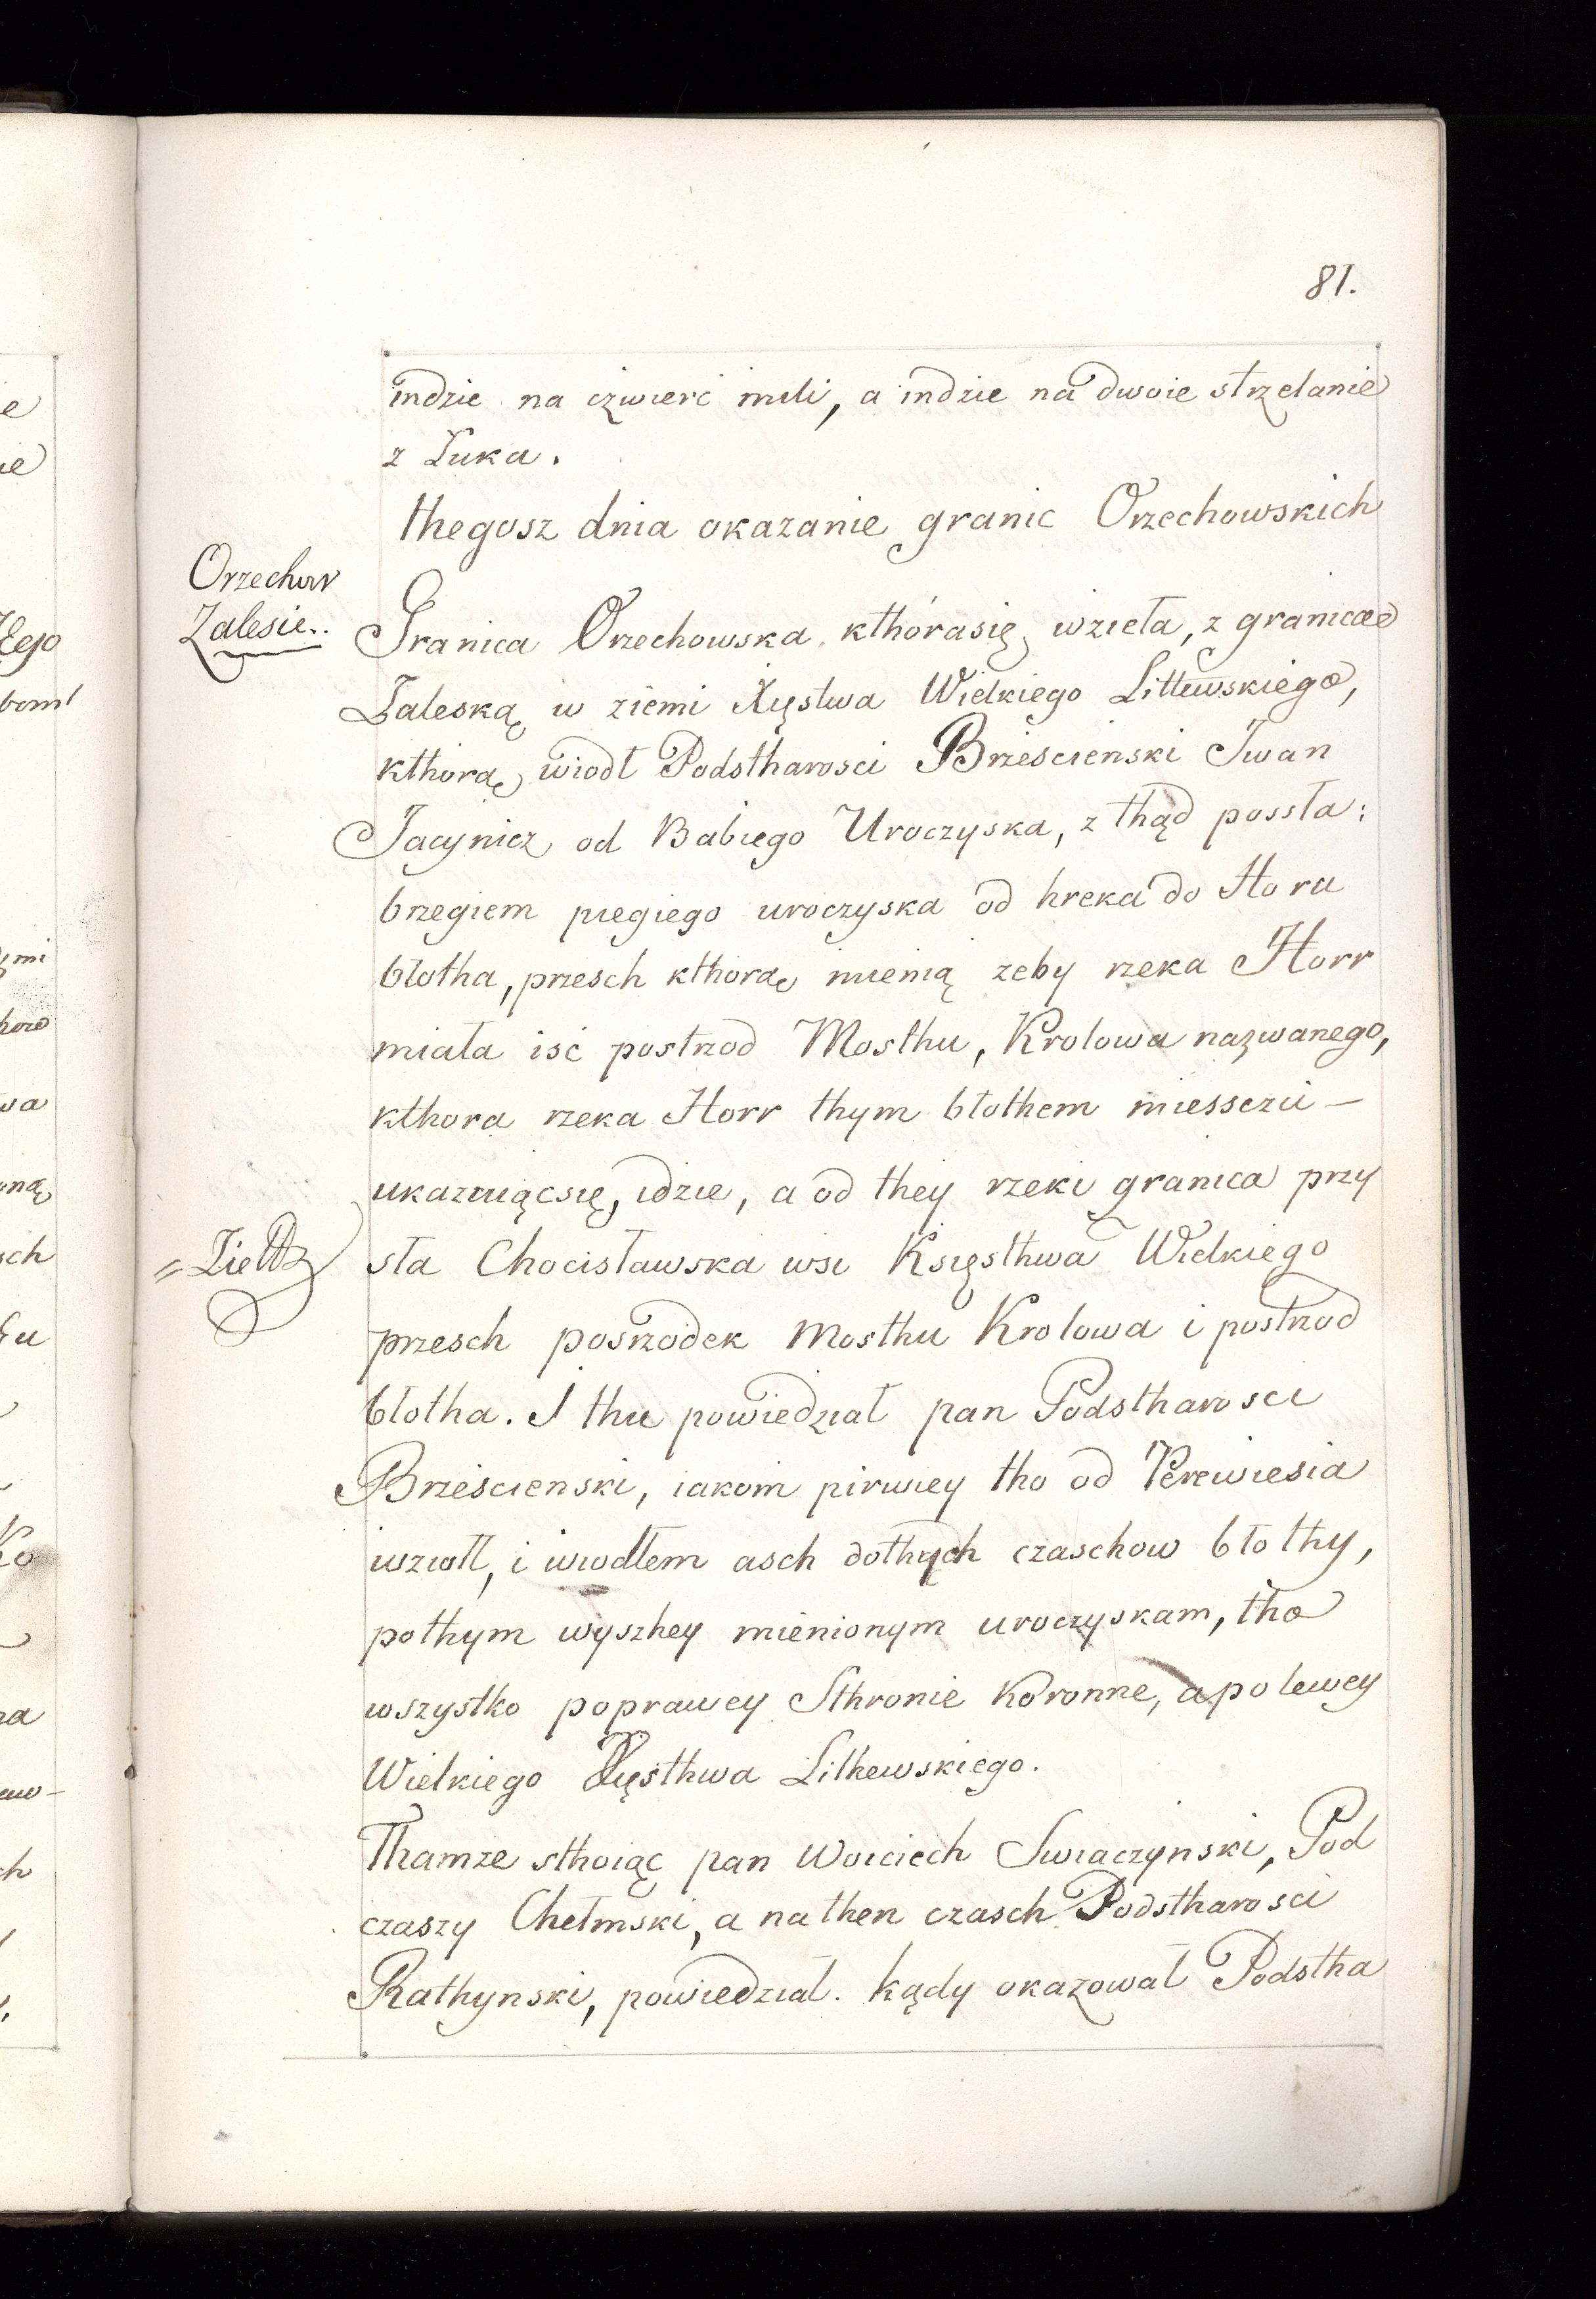 81.
indzie na czwierć mili, a indzie na dwoie strzelanie
z Łuka.
thegosz dnia okazanie granic Orzechowskich
Orzechow
Zalesie..
Granica Orzechowska kthórasię wzieła, z granicae
Zaleską w ziemi Xięstwa Wielkiego Littewskiego,
kthorą wiodł Podstharosci Brzescienski Iwan
Jacynicz od Babiego Uroczyska, z thąd possła:
brzegiem piegiego uroczyska od hreka do Horu
błotha, przesch kthorą mienią zeby rzeka Horr
miała isć postrzod Mosthu, Krolowa nazwanego,
kthora rzeka Horr thym błothem miessczu -
ukazuiącsię, idzie, a od they rzeki granica przy
sła Chocisławska wsi Księsthwa Wielkiego
przesch posrzodek Mosthu Krolowa i postrzod
błotha. I thu powiedział pan Podstharosci
Brześcienski, iakom pirwiey tho od Perewiesia
wziołł, i wiodłem asch dothych czaschow błothy,
pothym wyszhey mienionym uroczyskam, tho
wszystko poprawey Sthronie Koronne, apolewey
Wielkiego Xięsthwa Lithewskiego.
Thamze sthoiąc pan Woiciech Swiaczynski, Pod
czaszy Chełmski, a nathen czasch Podstharosci
Rathynski, powiedział. kądy okazował Podstha